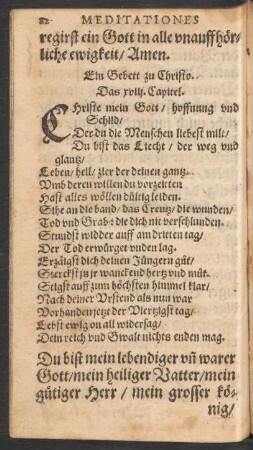 82 MEDITATIONES
regirst ein Gott in alle vnauffhör⸗
liche ewigkeit/ Amen.
Ein Gebett zu Christo.
Das xviij. Capitel.
CHriste mein Gott/ hoffnung vnd
Schild/
Der du die Menschen liebest milt/
Du bist das Liecht/ der weg vnd
glantz/
Leben/ heil/ zier der deinen gantz.
Vmb deren willen du vorzeitten
Hast alles wöllen dültig leiden.
Sihe an die band/ das Creutz/ die wunden/
Tod vnd Grab: die dich nit verschlunden.
Stundst widder auff am dritten tag/
Der Tod erwürget vnden lag.
Erzaigst dich deinen Jüngern gůt/
Sterckst jn jr wanckend hertz vnd můt.
Stigst auff zum höchsten himmel klar/
Nach deiner Vrstend als nun war
Vorhanden jetze der Viertzigst tag/
Lebst ewig on all widersag/
Dein reich vnd Gwalt nichts enden mag.
Du bist mein lebendiger vn̄ warer
Gott/mein heiliger Vatter/mein
gütiger Herr/ mein grosser kö⸗
nig/